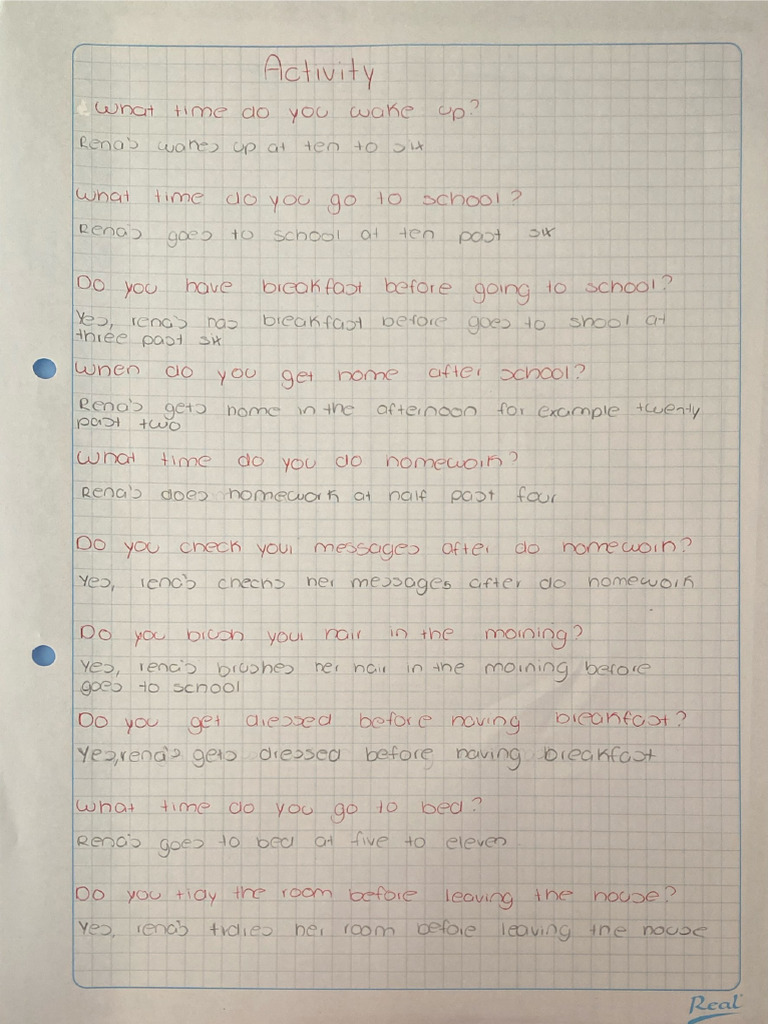 Activity
What time do you wake up?
Rena's wakes up at ten to six
What time do you go to school?
Rena's goes to school at ten past six
Do you have breakfast before going to school?
Yes, rena's has breakfast before goes to shool at
three past six
When do you get home after school?
Rena's gets home in the afternoon for example twenty
past two
What time do you do homework?
Rena's does homework at half past four
Do you check your messages after do homework?
Yes, rena's checks her messages after do homework
Do you brush your hair in the morning?
Yes, rena's brushes her hair in the morning before
goes to school
Do you get dressed before having breakfast?
Yes, rena's gets dressed before having breakfast
What time do you go to bed?
Rena's goes to bed at five to eleven
Do you tidy the room before leaving the house?
Yes, rena's tidies her room before leaving the house
Real